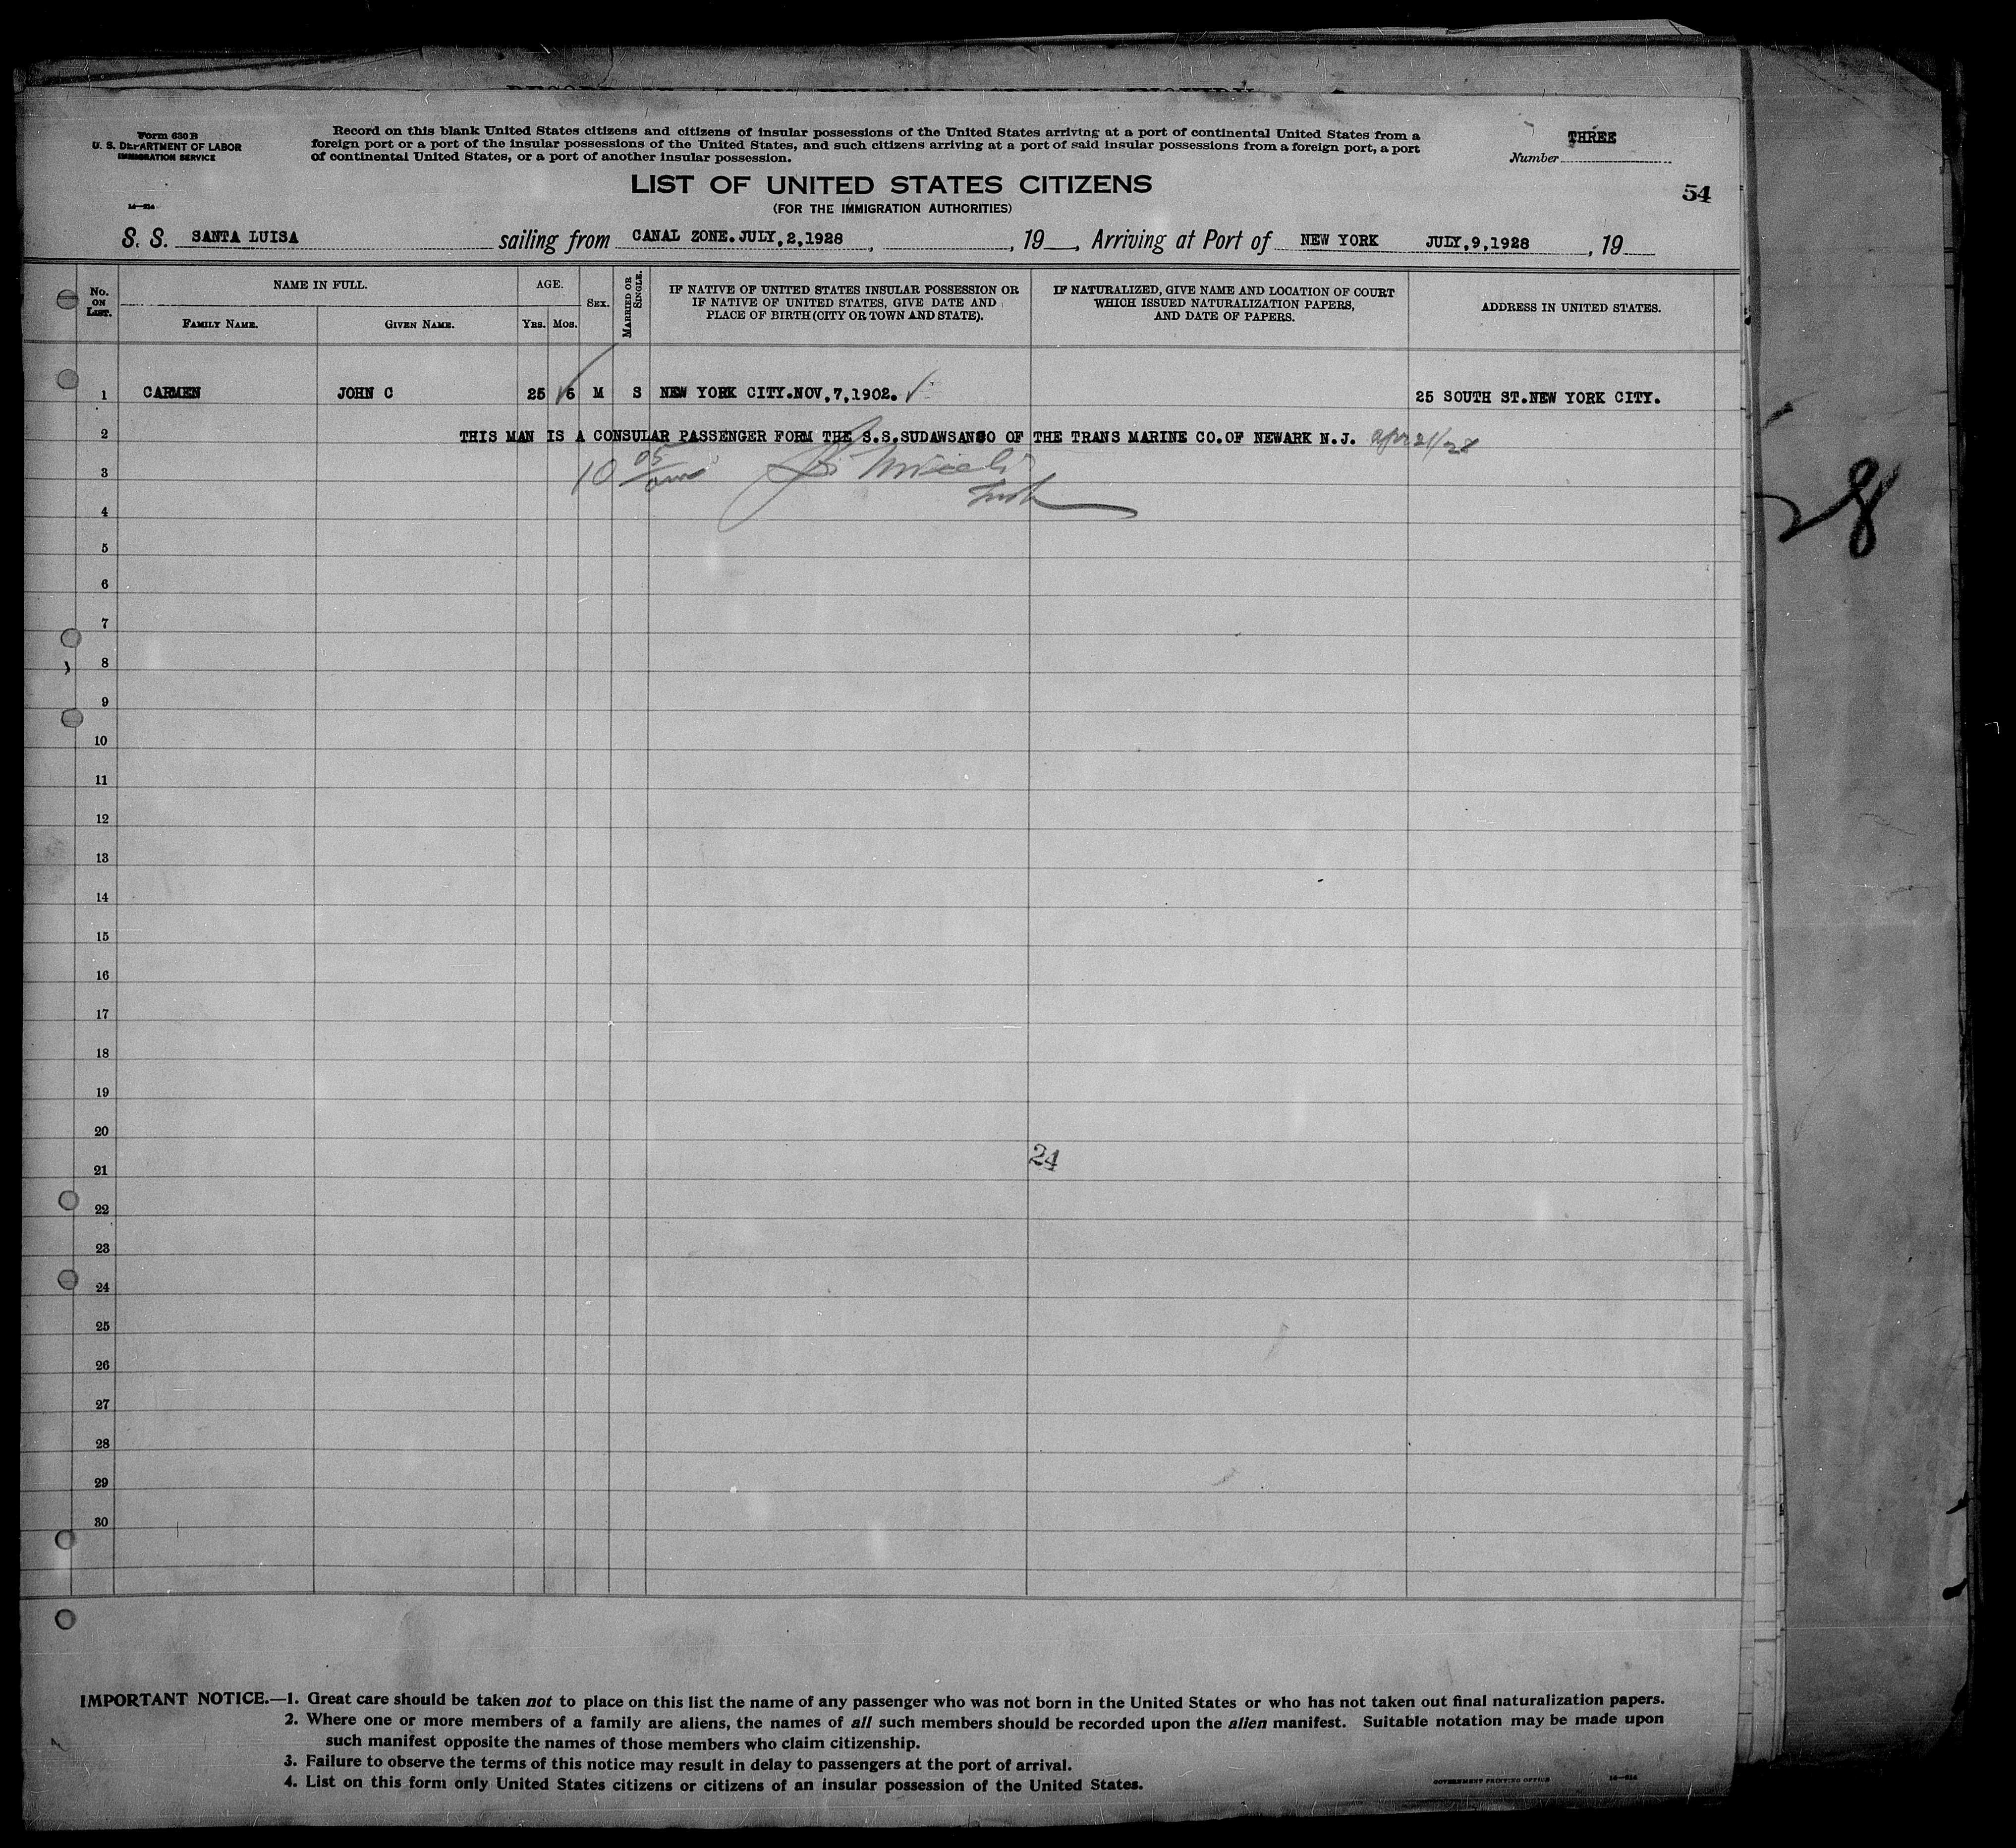 Form 630 B
U. S. DEPARTMENT OF LABOR
IMMIGRATION SERVICE
Record on this blank United States citizens and citizens of insular possessions of the United States arriving at a port of continental United States from a
foreign port or a port of the insular possessions of the United States, and such citizens arriving at a port of said insular possessions from a foreign port, a port
of continental United States, or a port of another insular possession.
THREE
Number
LIST OF UNITED STATES CITIZENS
(FOR THE IMMIGRATION AUTHORITIES)
54
S. S. SANTA LUISA sailing from CANAL ZONE.JULY,2,1928 , , 19 , Arriving at Port of NEW YORK JULY,9,1928 , 19
No. ON LIST.
NAME IN FULL.
FAMILY NAME.
GIVEN NAME.
AGE.
YRS. MOS.
SEX.
MARRIED OR SINGLE.
IF NATIVE OF UNITED STATES INSULAR POSSESSION OR
IF NATIVE OF UNITED STATES, GIVE DATE AND
PLACE OF BIRTH (CITY OR TOWN AND STATE).
IF NATURALIZED, GIVE NAME AND LOCATION OF COURT
WHICH ISSUED NATURALIZATION PAPERS,
AND DATE OF PAPERS.
ADDRESS IN UNITED STATES.
1 CARMEN JOHN C 25 6 M S NEW YORK CITY.NOV,7,1902. 25 SOUTH ST.NEW YORK CITY.
2 THIS MAN IS A CONSULAR PASSENGER FORM THE S.S.SUDAWSANSO OF THE TRANS MARINE CO.OF NEWARK N.J. apr 21/28
3 10 05
4
28
5
6
7
8
9
10
11
12
13
14
15
16
17
18
19
20
24
21
22
23
24
25
26
27
28
29
30
IMPORTANT NOTICE.—1. Great care should be taken not to place on this list the name of any passenger who was not born in the United States or who has not taken out final naturalization papers.
2. Where one or more members of a family are aliens, the names of all such members should be recorded upon the alien manifest. Suitable notation may be made upon
such manifest opposite the names of those members who claim citizenship.
3. Failure to observe the terms of this notice may result in delay to passengers at the port of arrival.
4. List on this form only United States citizens or citizens of an insular possession of the United States.
GOVERNMENT PRINTING OFFICE